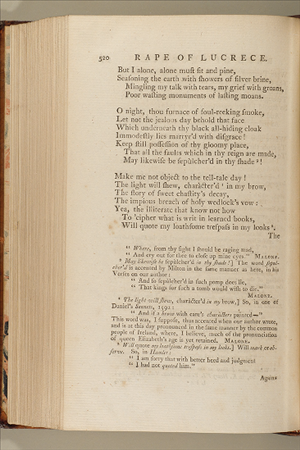 520 RAPE OF LUCRECE.
But I alone, alone must sit and pine,
Seasoning the earth with showers of silver brine,
Mingling my talk with tears, my grief with groans,
Poor wasting monuments of lasting moans.
O night, thou furnace of foul-reeking smoke,
Let not the jealous day behold that face
Which underneath thy black all-hiding cloak
Immodestly lies martyr'd with disgrace!
Keep still possession of thy gloomy place,
That all the faults which in thy reign are made,
May likewise be sepúlcher'd in thy shade!
Make me not object to the tell-tale day!
The light will shew, charácter'd in my brow,
The story of sweet chastity's decay,
The impious breach of holy wedlock's vow:
Yea, the illiterate that know not how
To 'cipher what is writ in learned books,
Will quote my loathsome trespass in my looks.
The
" Where, from thy sight I should be raging mad,
" And cry out for thee to close up mine eyes." MALONE.
May likewise be sepúlcher'd in thy shade!] The word sepúl-
cher'd is accented by Milton in the same manner as here, in his
Verses on our author:
" And so sepúlcher'd in such pomp dost lie,
" That kings for such a tomb would wish to die."
MALONE.
The light will shew, charácter'd in my brow,] So, in
Daniel's
This word was, I suppose, thus accented when our author wrote,
and is at this day pronounced in the same manner by the common
people of Ireland, where, I believe, much of the pronunciation
of queen Elizabeth's age is yet retained. MALONE.
Will quote my loathsome trespass in my looks.] Will mark or ob-
serve. So, in Hamlet:
" I am sorry that with better heed and judgment
" I had not quoted him."
Again